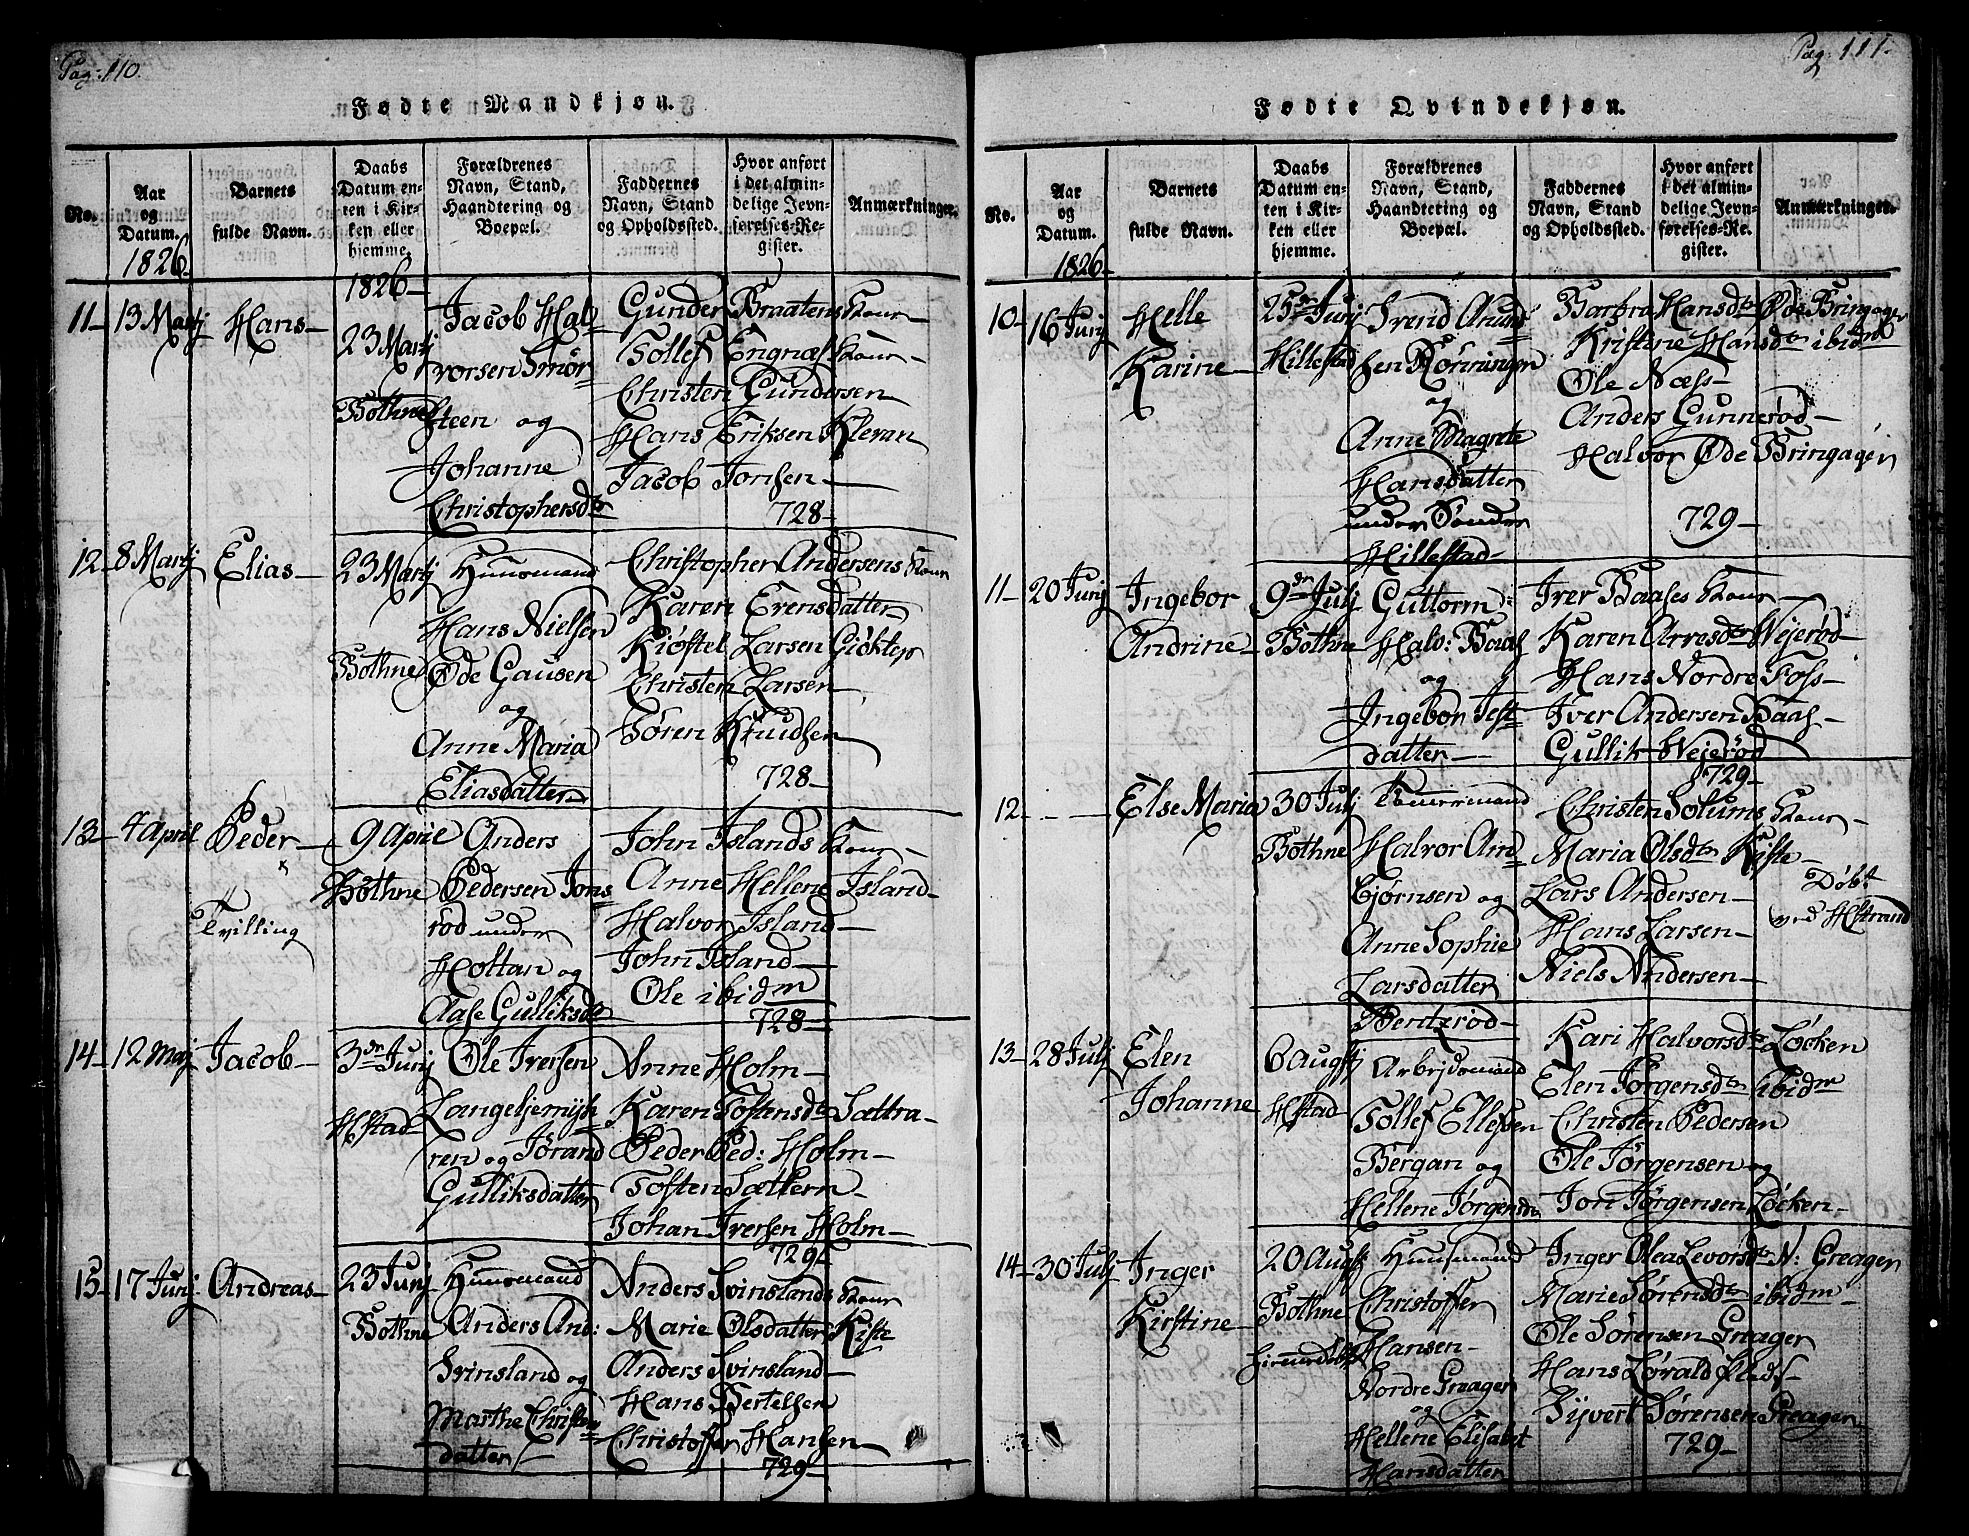 Pag: 110.
Fødte Mandkjøn.
No.
Aar og Datum.
Barnets fulde Navn.
Daabs Datum enten i Kirken eller hjemme.
Forældrenes Navn, Stand, Haandtering og Boepæl.
Faddernes Navn, Stand og Opholdssted.
Hvor anført i det almindelige Jevnførelses-Register.
Anmærkninger.
1826
1826
11 13 Martj Hans
23 Martj
Bothne
Jacob Hal
vorsen Smör
steen og
Johanne
Christophersdr
Gunder Braatens Kone
Tollef Engnæs Kone
Christen Gundersen
Hans Eriksen Klevan
Jacob Jonsen
728
12 8 Martj Elias
23 Martj
Bothne
Huusmand
Hans Nielsen
Øde Gausen
og
Anne Maria
Eliasdatter
Christopher Andersens Kone
Karen Evensdatter
Kiøstel Larsen Giøklep
Christen Larsen
Søren Knudsen
728
13 4 April Peder
Tvilling
9 April
Bothne
Anders
Pedersen Jons
rød under
Holtan og
Aase Gulliksdr
John Islands Kone
Anne Hellene Island
Halvor Island
John Island
Ole ibidm
728
14 12 Maj Jacob
3dr Junj
Hstad
Ole Iversen
Langeljemyh
ren og Jørand
Gulliksdatter
Anne Holm
Karen Tostensdr Sættra
Peder Ped: Holm
Tosten Sættern
Johan Iversen Holm
729
15 17 Junj Andreas
23 Junj
Bothne
Huusmand
Anders And:
Svinsland og
Marthe Christen
datter
Anders Svinslands Kone
Marie Olsdatter Kiste
Anders Svinsland
Hans Bertelsen
Christoffer Hansen
729
Pag: 111.
Fødte Qvindekjøn.
No.
Aar og Datum.
Barnets fulde Navn.
Daabs Datum enten i Kirken eller hjemme.
Forældrenes Navn, Stand, Haandtering og Boepæl.
Faddernes Navn, Stand og Opholdssted.
Hvor anført i det almindelige Jevnførelses-Register.
Anmærkninger.
1826
10 16 Junj Helle
Karine
25dr Junj
Hillestad
Svend Amund
sen Rønningen
og
Anne Magrete
Hansdatter
under Sønder
Hillestad
Barbra Hansdr Øde Bringager
Kristine Hansdr ibidm
Ole Næss
Anders Gunnerød
Halvor Øde Bringager
729
11 20 Junj Ingebor
Andrine
9dr Julj
Bothne
Guttorm
Halv: Baas
og
Ingebor Jest
datter
Iver Baases Kone
Karen Arvesdr Wejerød
Hans Nordre Foss
Iver Andersen Baas
Gullik Wejerød
729
12 Else Maria
30 Julj
Bothne
Halvor Am
bjørnsen og
Anne Sophie
Larsdatter
Bentsrød
Christen Solums Kone
Maria Olsdr Kiste
Lars Andersen
Hans Larsen
Niels Andersen
Døbt
ved Hstrand
13 28 Julj Elen
Johanne
6 Augstj
Hstad
Arbejdsmand
Tollef Ellefsen
Bergan og
Hellene Jørgensdr
Kari Halvorsdr Løcken
Elen Jørgensdr ibidm
Christen Pedersen
Ole Jørgensen og
Jon Jørgensen Løcken
14 30 Julj Inger
Kirstine
20 Augst
Bothne
Huusmand
Christoffer
Hansen
Nordre Greager
og
Hellene Elisabt
Hansdatter
Inger Olea Levorsdr N: Greager
Marie Sørensdr ibidm
Ole Sørensen Greager
Hans Lørald
Sivert Sørensen Greager
729